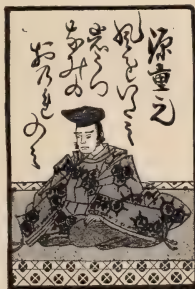 源重之
風をいたみ
岩うつ
なみの
おのれのみ